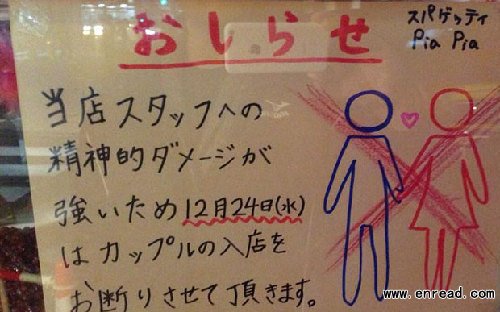 おしらせ
スパゲッティ
Pia Pia
当店スタッフへの
精神的ダメージが
強いため12月24日(水)
はカップルの入店を
お断りさせて頂きます。
www.enread.com